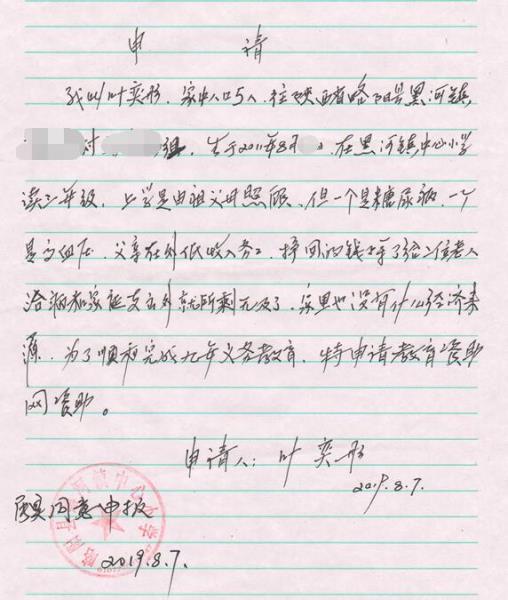 申 请
我叫叶奕彤，家中人口5人，住陕西省略阳县黑河镇
村 组，生于2011年8月 ，在黑河镇中心小学
读二年级，上学是由祖父母照顾，但一个是糖尿病，一个
是高血压，父亲在外低收入务工，挣回的钱除了给二位老人
治病和家庭支出外就所剩无几了，家里也没有什么经济来
源，为了顺利完成九年义务教育，特申请教育资助
网资助。
申请人：叶奕彤
2019.8.7.
属实同意申报
2019.8.7.